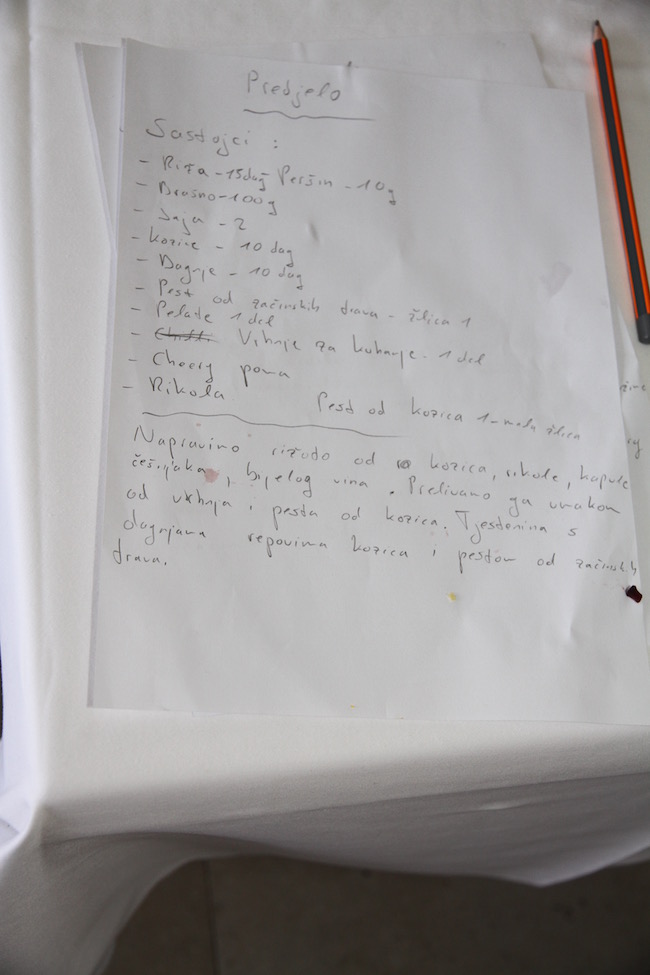 Predjelo
Sastojci :
- Riža - 15dag Peršin - 10g
- Brašno - 100g
- Jaja - 2
- Kozice - 10 dag
- Dagnje - 10 dag
- Pest od začinskih trava - žlica 1
- Pelate 1 dcl
- Vrhnje za kuhanje - 1 dcl
- Cherry poma
- Rikola Pest od kozica 1 - mala žlica
Napravimo rižoto od kozica, rikole, kapule
češnjaka, bijelog vina. Prelivamo ga umakom
od vrhnja i pesta od kozica. Tjestenina s
dagnjama repovima kozica i pestom od začinskih
trava.